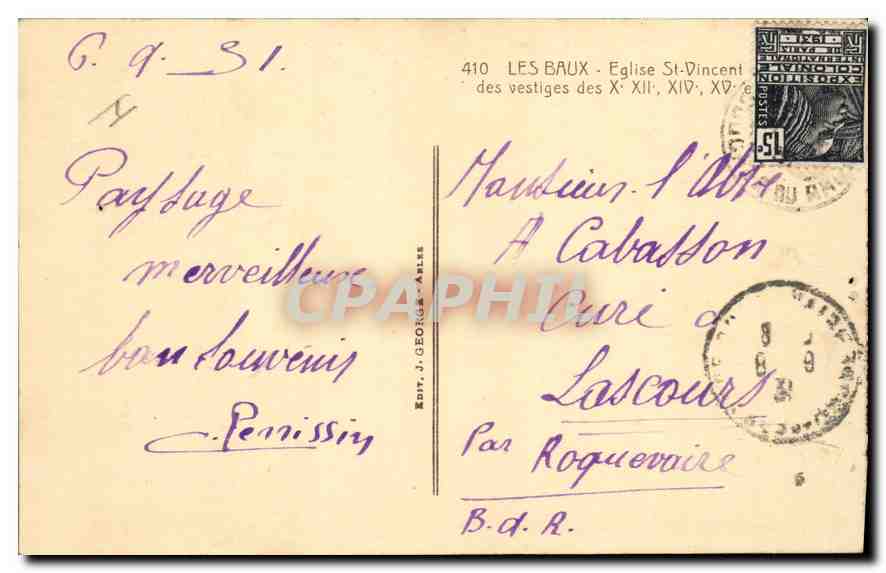 6. 9. 31.
Paysage
merveilleux
bon souvenir
Perrissin
410 LES BAUX - Eglise St-Vincent
des vestiges des X· XII·, XIV·, XV· e
Monsieur l'Abbé
A Cabasson
Curé à
Lascours
Par Roquevaire
B. d. R.
EDIT. J. GEORGE - ARLES
EXPOSITION
COLONIALE
INTERNATIONALE
DE PARIS
1931
POSTES
15c
CPAPHIL